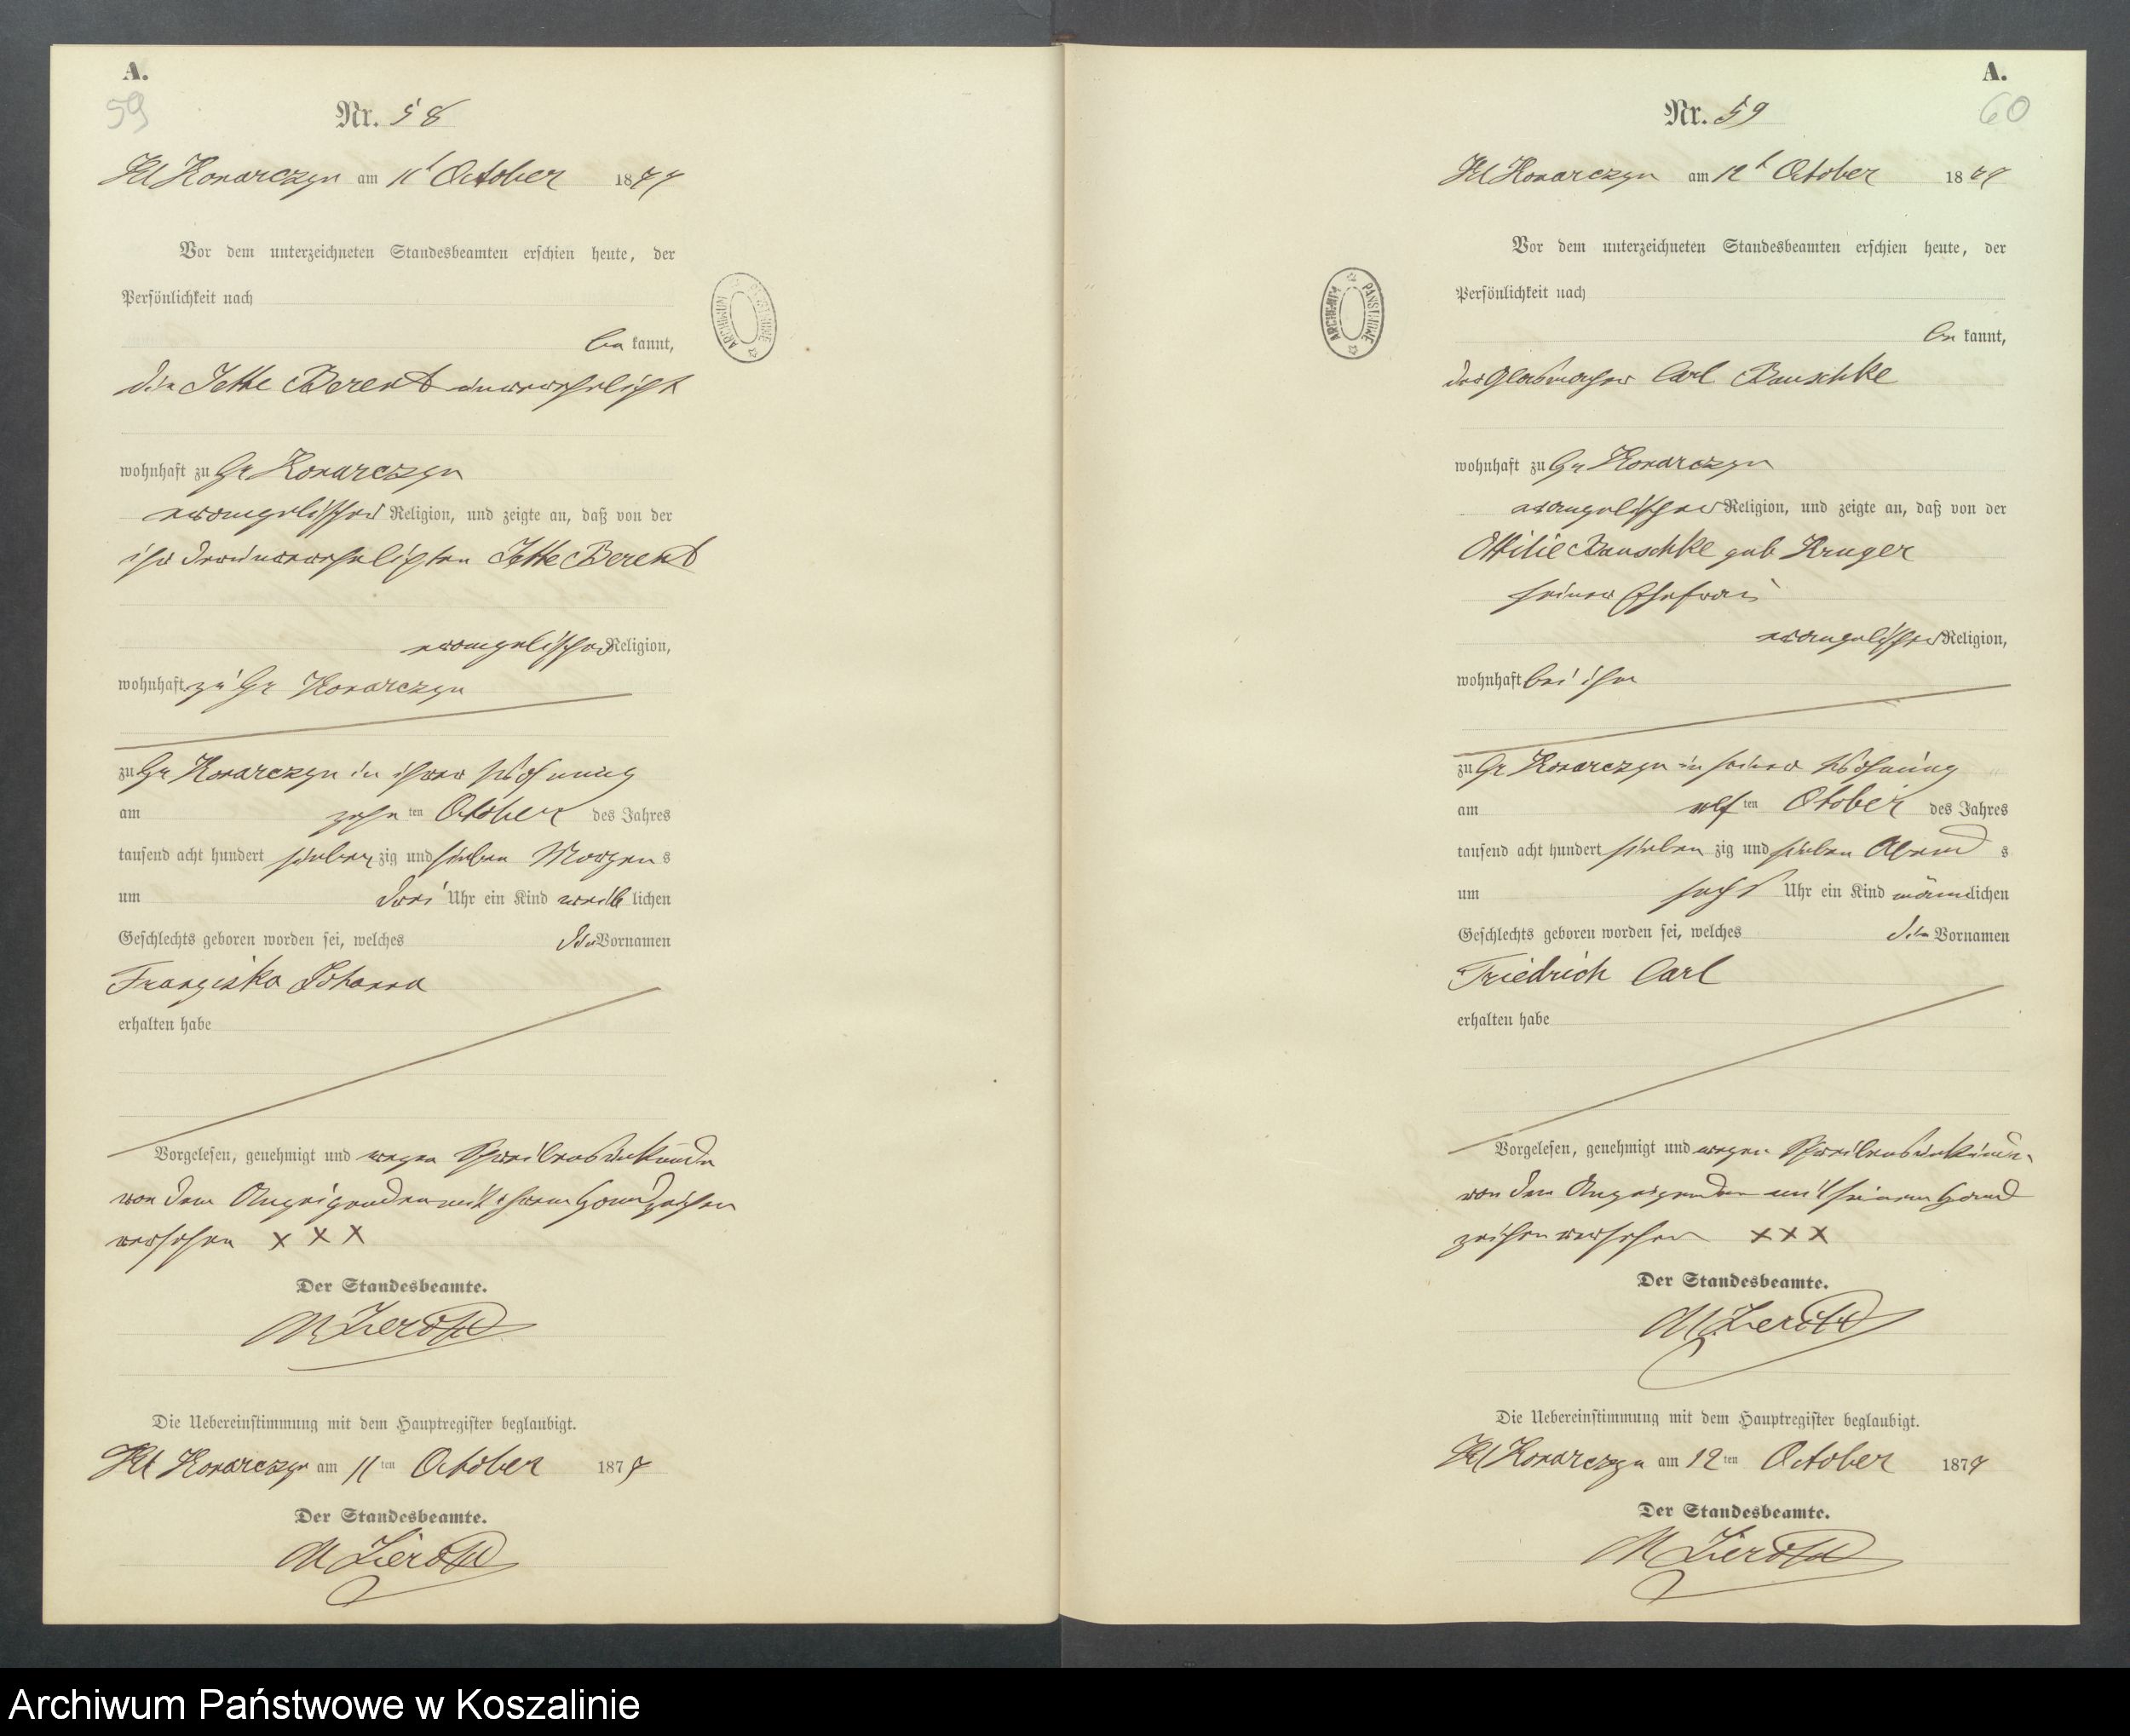 A.
59
Nr. 58
Kl Konarczyn am 11t October 1877
Vor dem unterzeichneten Standesbeamten erschien heute, der
Persönlichkeit nach
be kannt,
die Jette Berent unverehelicht
wohnhaft zu Gr Konarczyn
evangelischer Religion, und zeigte an, daß von der
ihr der unverehelichten Jette Berent
evangelischer Religion,
wohnhaft zu Gr Konarczyn
zu Gr Konarczyn in ihrer Wohnung
am zehn ten October des Jahres
tausend acht hundert sieben zig und sieben Morgen s
um drei Uhr ein Kind weib lichen
Geschlechts geboren worden sei, welches die Vornamen
Franziska Johanna
erhalten habe
Vorgelesen, genehmigt und wegen Schreibensunkunde
von dem Anzeigenden mit ihrem Handzeichen
versehen XXX
Der Standesbeamte.
Die Uebereinstimmung mit dem Hauptregister beglaubigt.
Kl Konarczyn am 11 ten October 1877
Der Standesbeamte.
ARCHIWUM PAŃSTWOWE
A.
60
Nr. 59
Kl Konarczyn am 12t October 1877
Vor dem unterzeichneten Standesbeamten erschien heute, der
Persönlichkeit nach
be kannt,
der Glasmacher Carl Bauschke
wohnhaft zu Gr Konarczyn
evangelischer Religion, und zeigte an, daß von der
Ottilie Bauschke geb Kruger
seiner Ehefrau
evangelischer Religion,
wohnhaft bei ihm
zu Gr Konarczyn in seiner Wohnung
am elf ten Otober des Jahres
tausend acht hundert sieben zig und sieben Abend s
um sechs Uhr ein Kind männ lichen
Geschlechts geboren worden sei, welches die Vornamen
Friedrich Carl
erhalten habe
Vorgelesen, genehmigt und wegen Schreibensunkunde
von dem Anzeigenden mit seinem Hand
zeichen versehen XXX
Der Standesbeamte.
Die Uebereinstimmung mit dem Hauptregister beglaubigt.
Kl Konarczyn am 12 ten October 1877
Der Standesbeamte.
ARCHIWUM PAŃSTWOWE
Archiwum Państwowe w Koszalinie